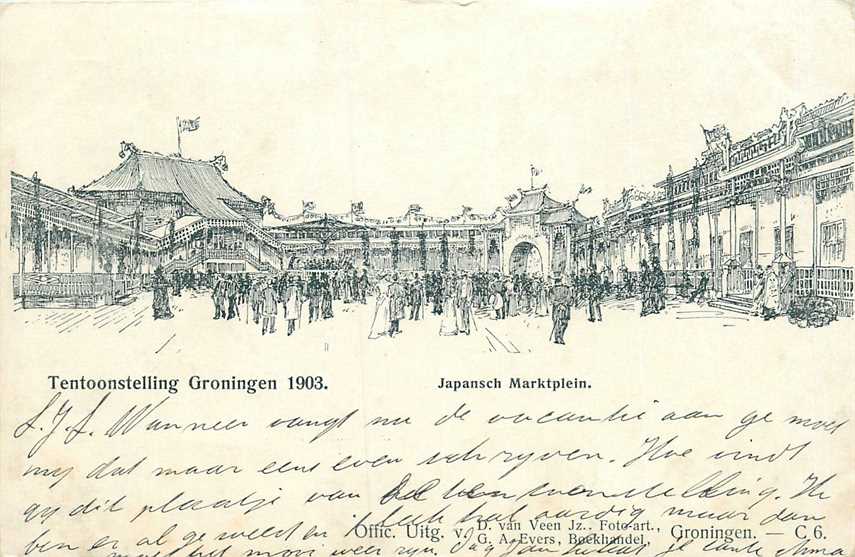 Tentoonstelling Groningen 1903.
Japansch Marktplein.
Wanneer vangt nu de vacantie aan ge moet
my dat maar eens even schryven. Hoe vindt
gy dit plaatje van de tentoonstelling. Ik
ben er al geweest en 't leek heel aardig maar dan
moet het mooi weer zyn. Dag
Offic. Uitg. v. D. van Veen Jz., Foto-art.,
G. A. Evers, Boekhandel, Groningen. — C 6.